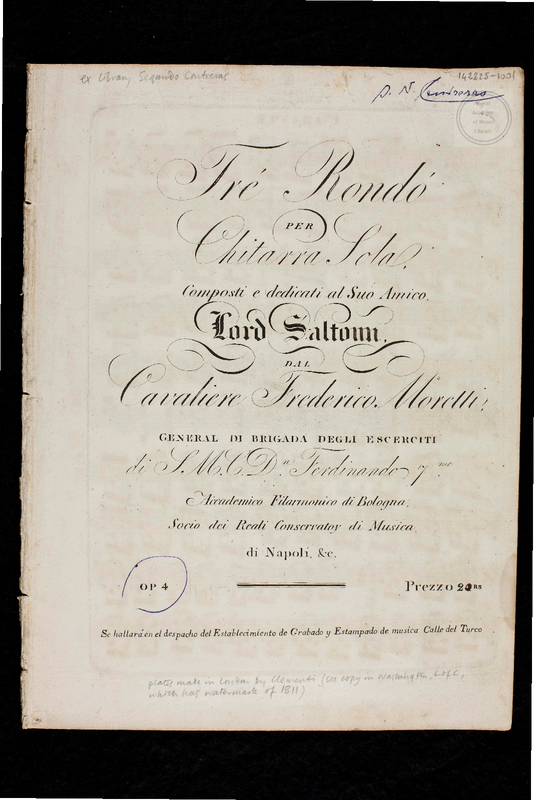 ex Library Segundo Contreras
142825-1001
S. N. Contreras
Royal
Academy
of Music
Library
Tré Rondó
PER
Chitarra Sola.
Composti e dedicati al Suo Amico.
Lord Saltoun.
DAL
Cavaliere Frederico Moretti,
GENERAL DI BRIGADA DEGLI ESCERCITI
di S. M. C. Dn. Ferdinando 7mo
Accademico Filarmonico di Bologna
Socio dei Reali Conservatoy di Musica
di Napoli, &c.
OP 4
Prezzo 20 RS
Se hallará en el despacho del Establecimiento de Grabado y Estampado de musica Calle del Turco
plates made in London by Clementi (see copy in Washington, L of C,
which has watermark of 1811)